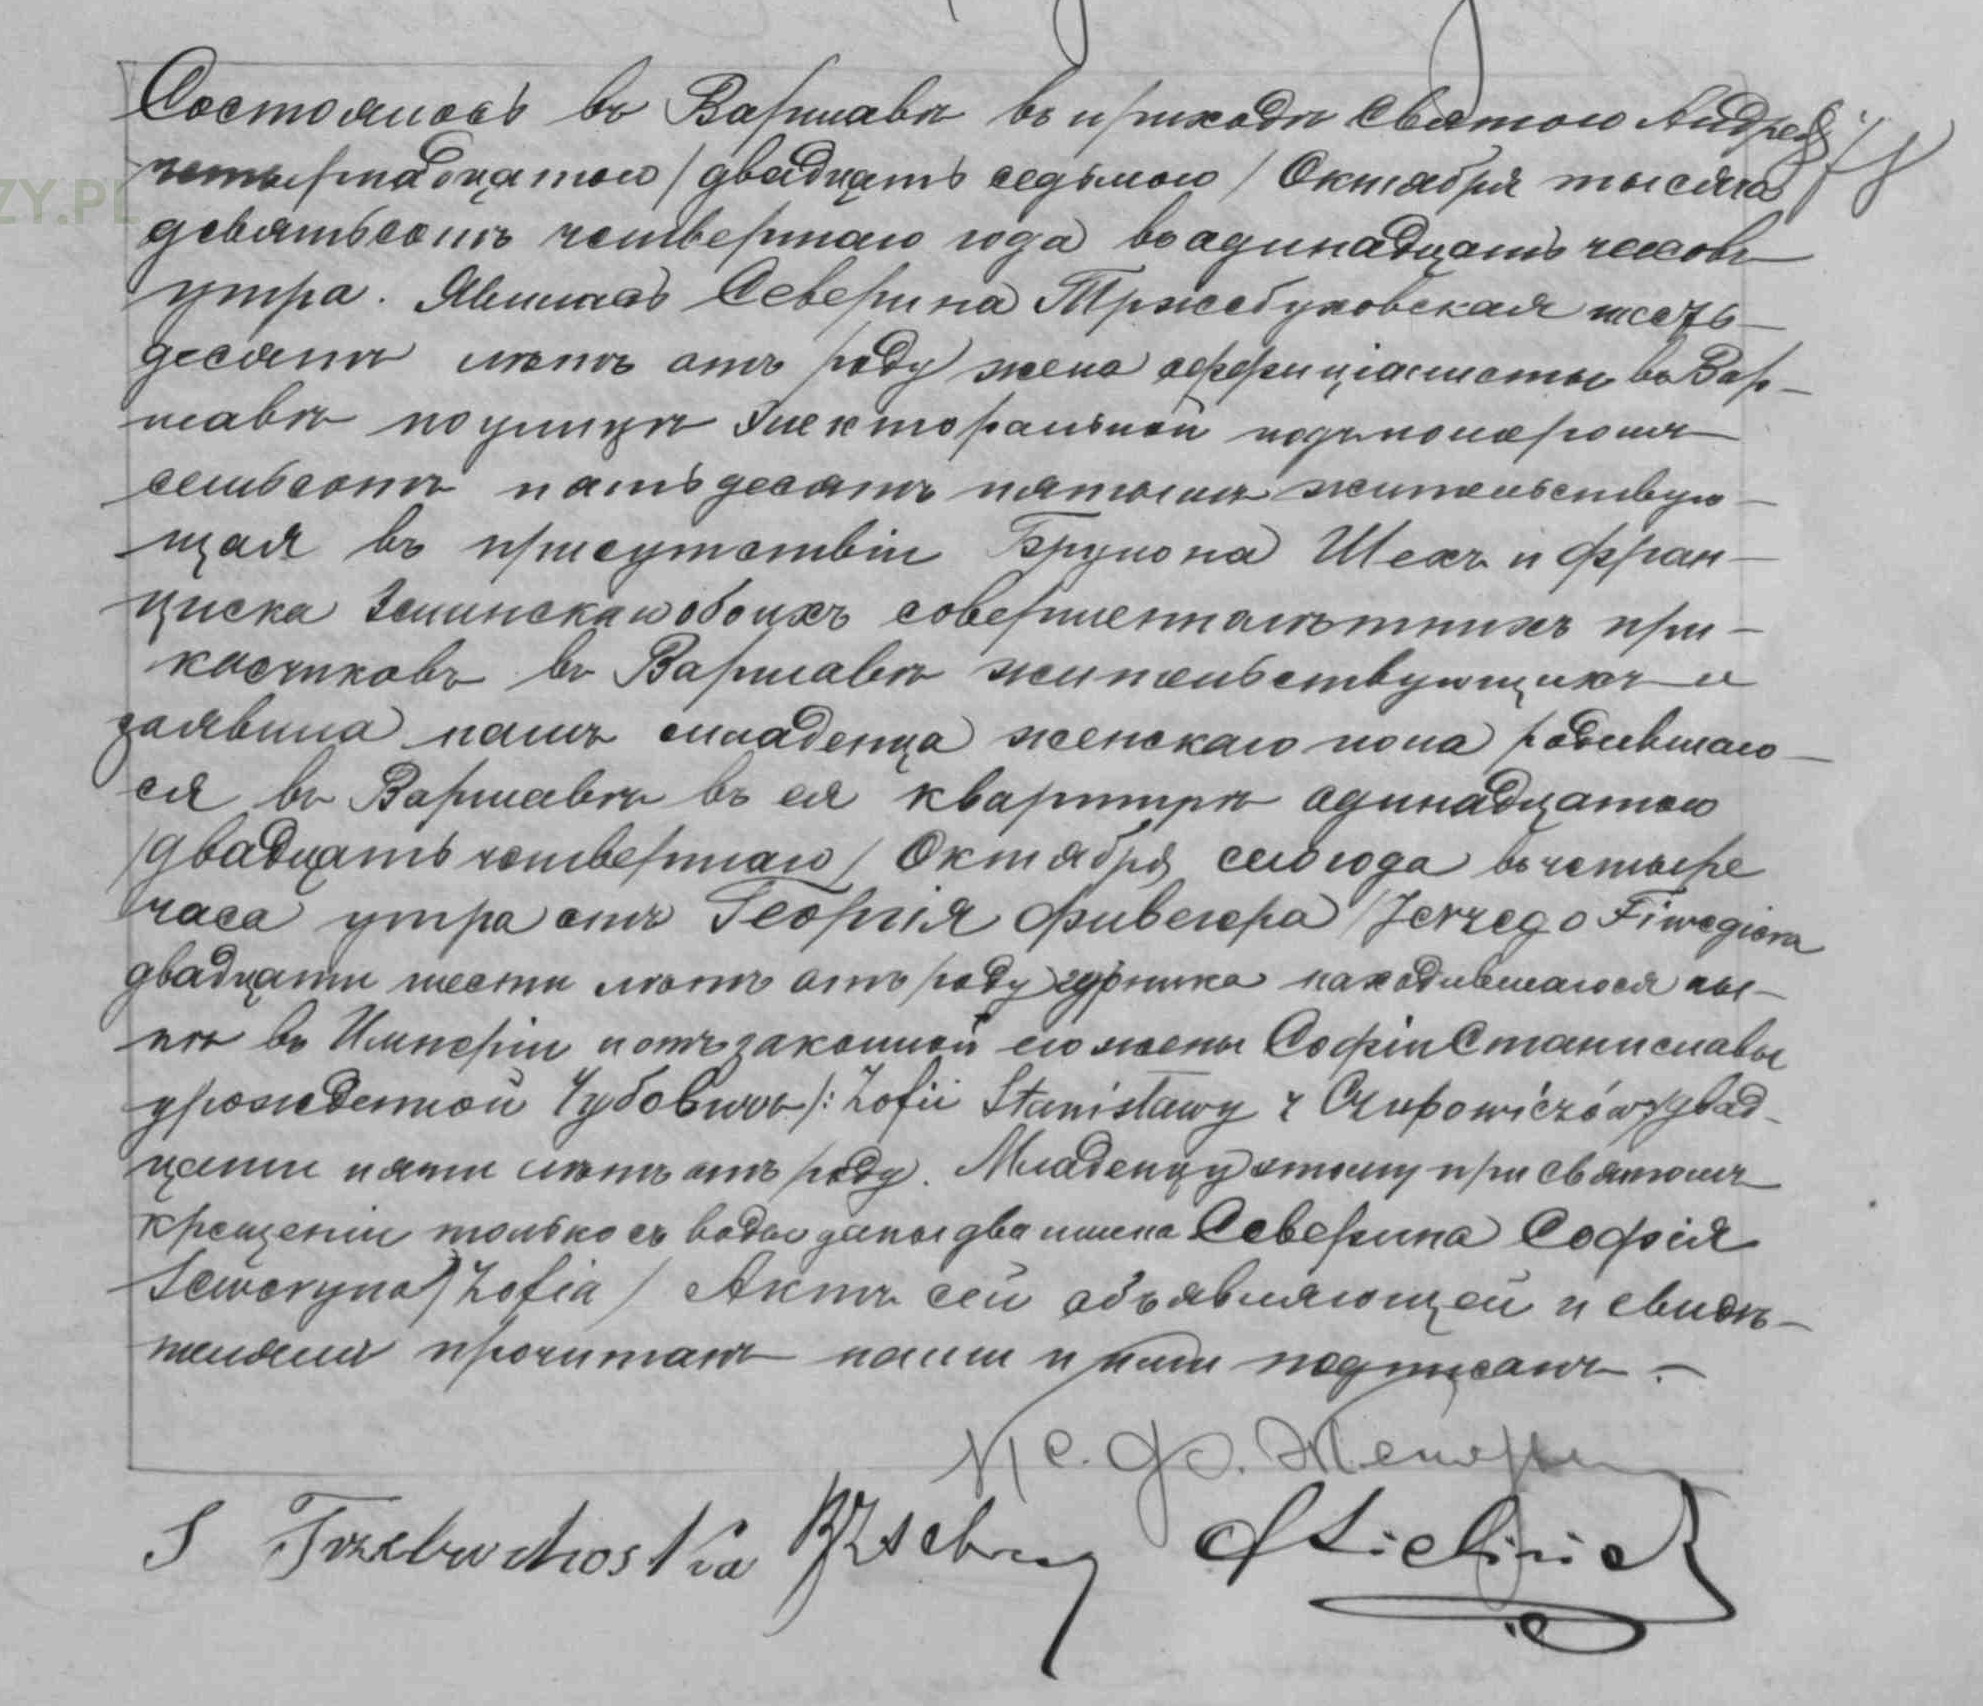 Состоялось въ Варшавѣ въ приходѣ Святого Андрея
четырнадцатого / двадцать седьмого / Октября тысяча
девятьсотъ четвертаго года въ одинадцать часовъ
утра. Явилась Северина Тржебуховская шесть-
десятъ лѣтъ отъ роду жена оффиціалисты въ Вар-
шавѣ по улицѣ Электоральной подъ номеромъ
семьсотъ пятьдесятъ пятымъ жительствую-
щая въ присутствіи Брунона Шехъ и Фран-
циска Зелинскаго обоихъ совершеннолѣтнихъ при-
касчиковъ въ Варшавѣ жительствующихъ и
заявила намъ младенца женскаго пола родившаго-
ся въ Варшавѣ въ ея квартирѣ одинадцатого
/ двадцать четвертаго / Октября сего года въ четыре
часа утра отъ Георгія Фивегера / Jerzego Fiwegiera
двадцати шести лѣтъ отъ роду находившагося ны-
нѣ въ Имперіи и отъ законной его жены Софіи Станиславы
урожденной Чубовичъ /: Zofii Stanisławy z Czubowiczów / двад-
цати пяти лѣтъ отъ роду. Младенцу этому при Святомъ
крещеніи только съ воды даны два имена Северина Софія
Seweryna / Zofia / Актъ сей объявляющей и свидѣ-
телямъ прочитанъ нами и ними подписанъ. -
Кс. Ф.
S Trzebuchoska